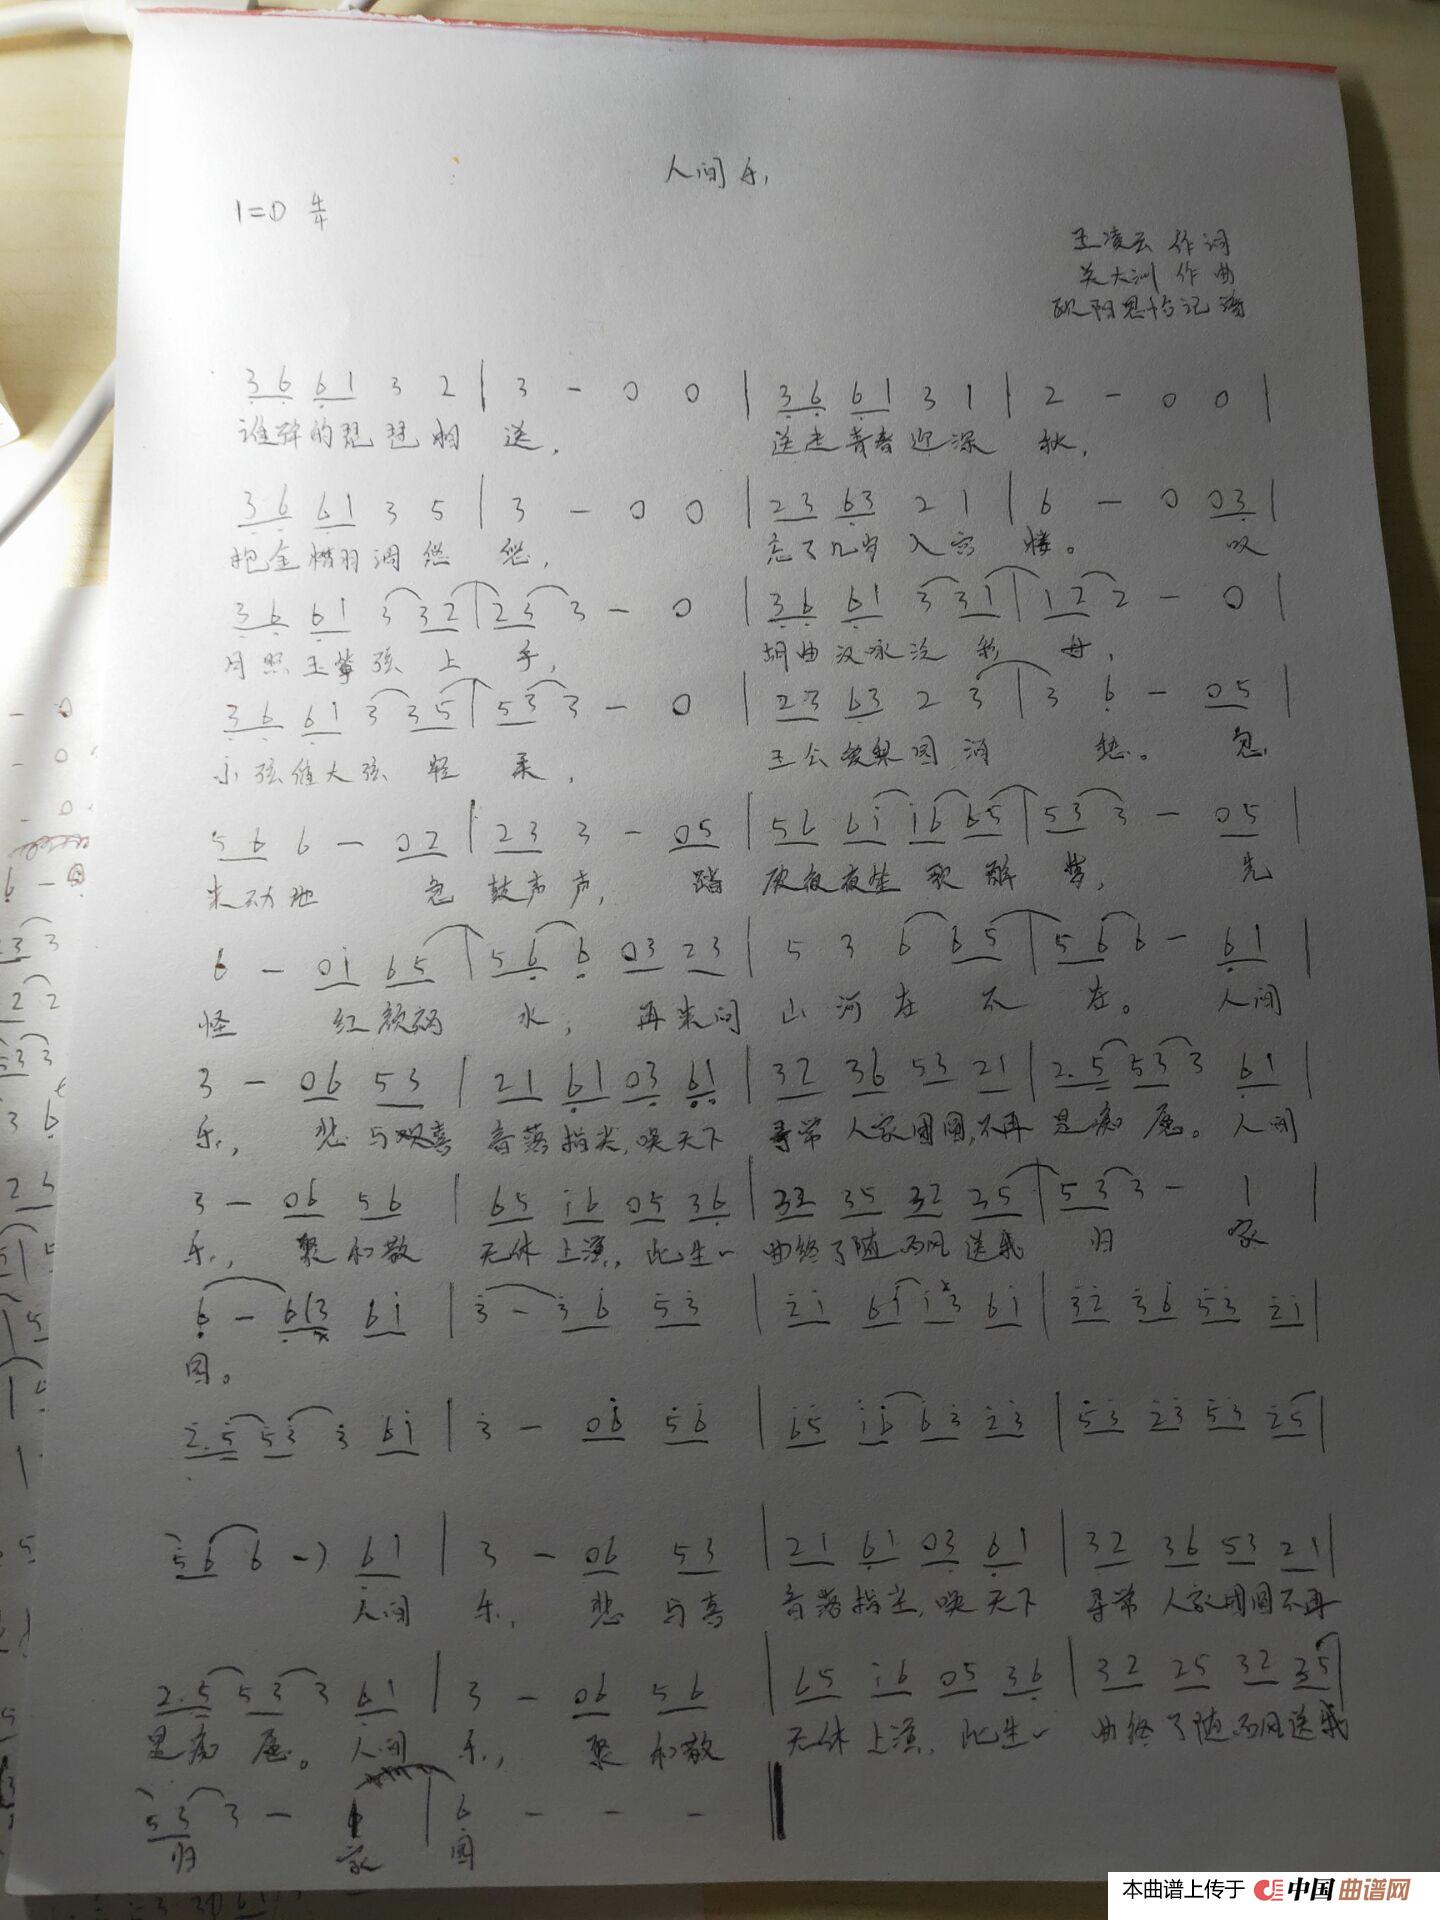 人间乐
1=D 4/4
王凌云 作词
关大洲 作曲
记谱
3 6 6 1 3 2 | 3 - 0 0 | 3 6 6 1 3 1 | 2 - 0 0 |
谁弹的琵琶相 送, 送走青春迎深 秋,
3 6 6 1 3 5 | 3 - 0 0 | 2 3 6 3 2 1 | 6 - 0 0 3 |
抱金 羽调悠 悠, 忘了几岁入宫 楼。 叹
3 6 6 1 3 3 2 | 2 3 3 - 0 | 3 6 6 1 3 3 1 | 1 2 2 - 0 |
月照玉 弦 上 手, 胡曲汉
3 6 6 1 3 3 5 | 5 3 3 - 0 | 2 3 6 3 2 3 | 3 6 - 0 5 |
小弦 大弦 轻 柔, 王公 梨园 消 愁。 忽
5 6 6 - 0 2 | 2 3 3 - 0 5 | 5 6 6 i i 6 6 5 | 5 3 3 - 0 5 |
来动地 急 鼓声声, 踏 夜夜笙 歌 醉 梦,
6 - 0 i 6 5 | 5 6 6 0 3 2 3 | 5 3 6 6 5 | 5 6 6 - 6 1 |
怪 红颜祸 水, 再来问 山 河 在 不 在。 人间
3 - 0 6 5 3 | 2 1 6 1 0 3 6 1 | 3 2 3 6 5 3 2 1 | 2. 5 5 3 3 6 1 |
乐, 悲 与欢喜 音落指尖, 唤天下 寻常 人家团圆,不再 是痴 愿。 人间
3 - 0 6 5 6 | 6 5 i 6 0 5 3 6 | 3 2 3 5 3 2 2 5 | 5 3 3 - 1 |
乐, 聚 和散 无休 上演, 此生一 曲终 了随 西风 送我 归 家
6 - 6 1 3 6 i | 3 - 3 6 5 3 | 2 i 6 i i 3 6 i | 3 2 3 6 5 3 2 i |
园。
2. 5 5 3 3 6 i | 3 - 0 6 5 6 | 6 5 i 6 6 3 2 3 | 5 3 2 3 5 3 2 5 |
5 6 6 -) 6 1 | 3 - 0 6 5 3 | 2 1 6 1 0 3 6 1 | 3 2 3 6 5 3 2 1 |
人间 乐, 悲 与喜 音落指尖, 唤天下 寻常 人家团圆不再
2. 5 5 3 3 6 1 | 3 - 0 6 5 6 | 6 5 i 6 0 5 3 6 | 3 2 2 5 3 2 3 5 |
是痴 愿。 人间 乐, 聚 和散 无休 上演, 此生一 曲终 了随 西风送我
5 3 3 - | 6 - - -
归 家 园
本曲谱上传于 中国曲谱网